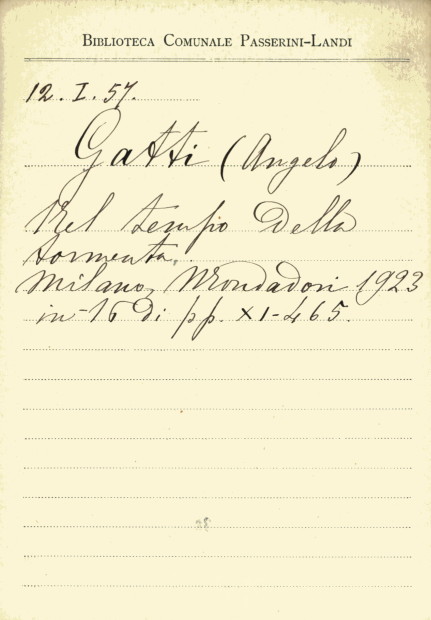 BIBLIOTECA COMUNALE PASSERINI-LANDI
12. I. 57.
Gatti (Angelo)
Nel tempo della
tormenta.
Milano, Mondadori 1923
in-16 di pp. XI-465.